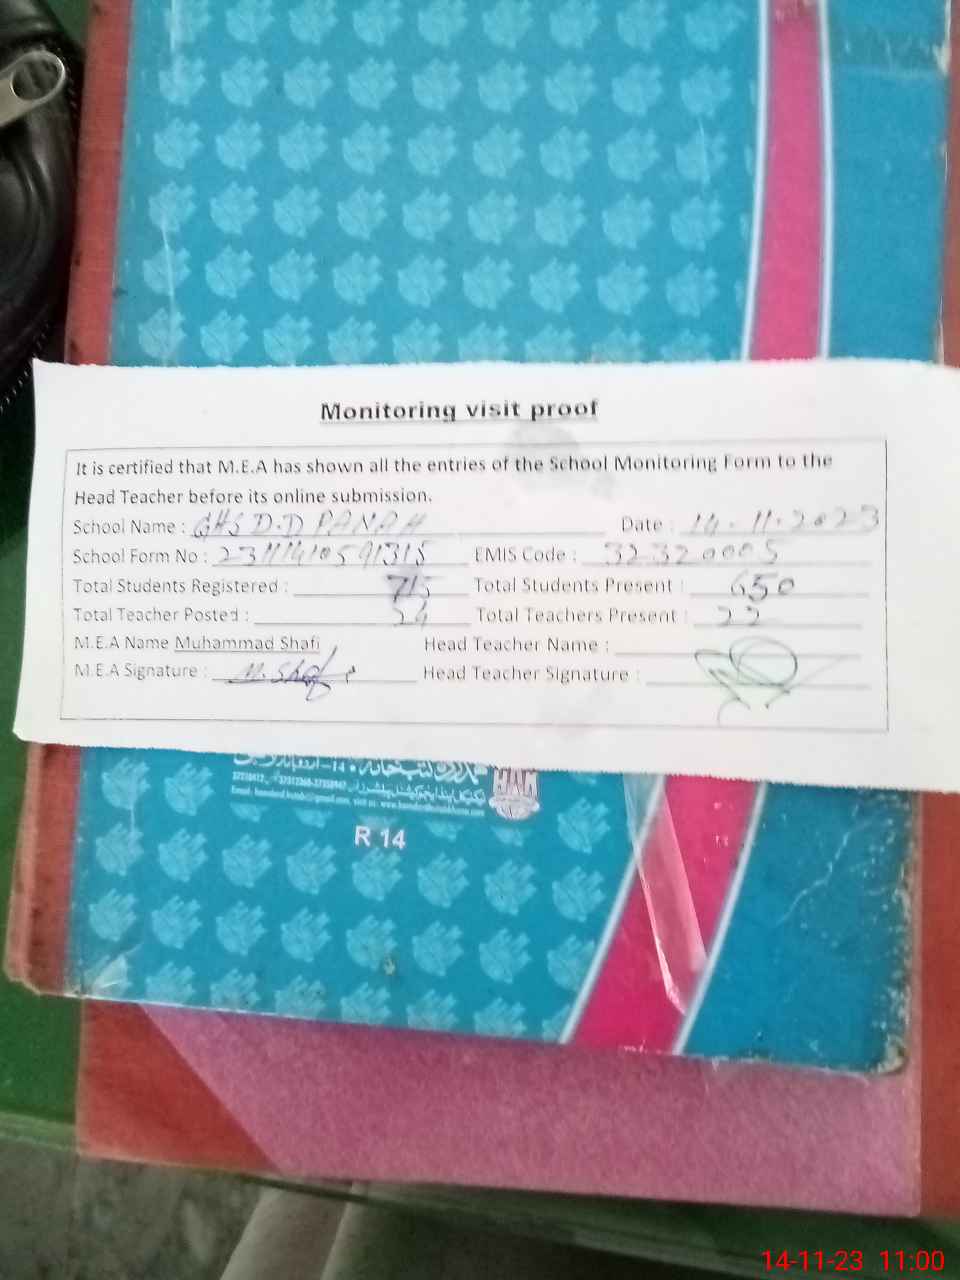 Monitoring visit proof
It is certified that M.E.A has shown all the entries of the School Monitoring Form to the
Head Teacher before its online submission.
School Name : GHS D.D PANAH Date : 14.11.2023
School Form No : EMIS Code : 32320005
Total Students Registered : 715 Total Students Present : 650
Total Teacher Posted : 24 Total Teachers Present : 22
M.E.A Name Muhammad Shafi Head Teacher Name :
M.E.A Signature : M. Shafi Head Teacher Signature :
R 14
14-11-23 11:00